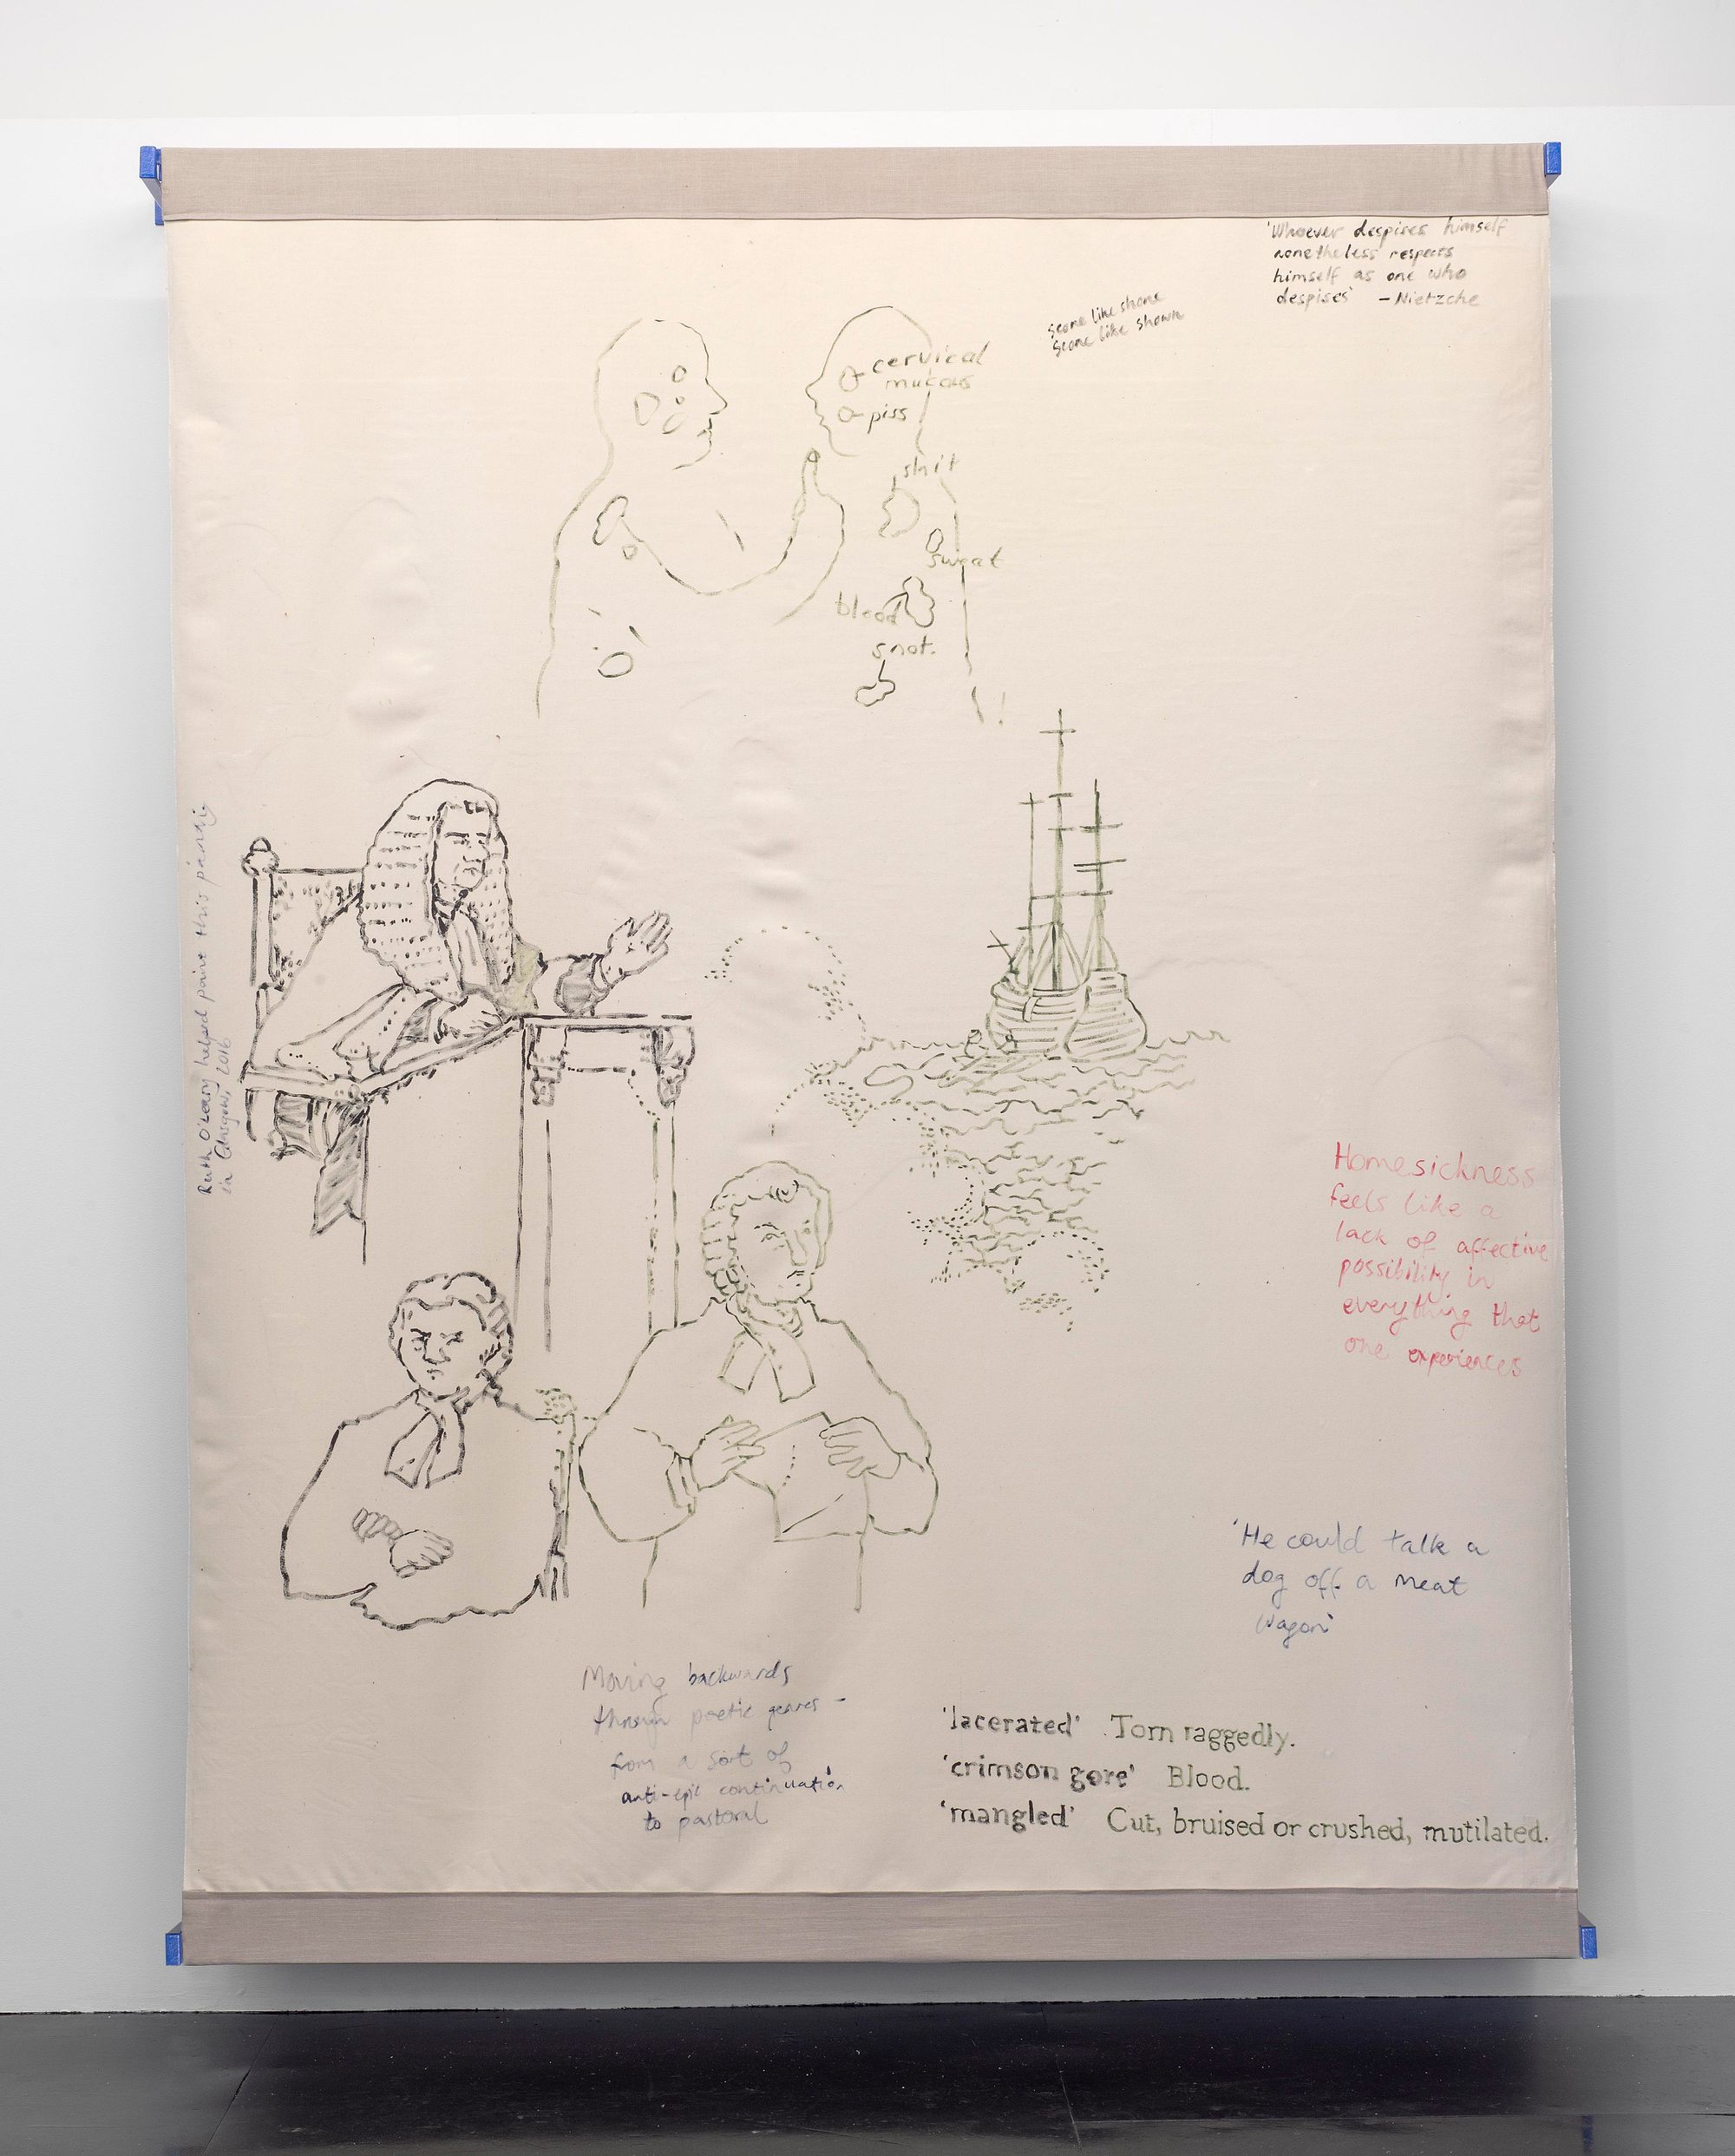 'Whoever despises himself
nonetheless respects
himself as one who
despises' - Nietzche
scone like shone
scone like shown
cervical
mucous
piss
shit
sweat
blood
snot.
Ruth O'Leary helped paint this
in Glasgow, 2016
Homesickness
feels like a
lack of affective
possibility in
everything that
one experiences
'He could talk a
dog off a meat
wagon'
Moving backwards
through poetic genres -
from a sort of
anti-epic continuation
to pastoral
'lacerated' Torn raggedly.
'crimson gore' Blood.
'mangled' Cut, bruised or crushed, mutilated.